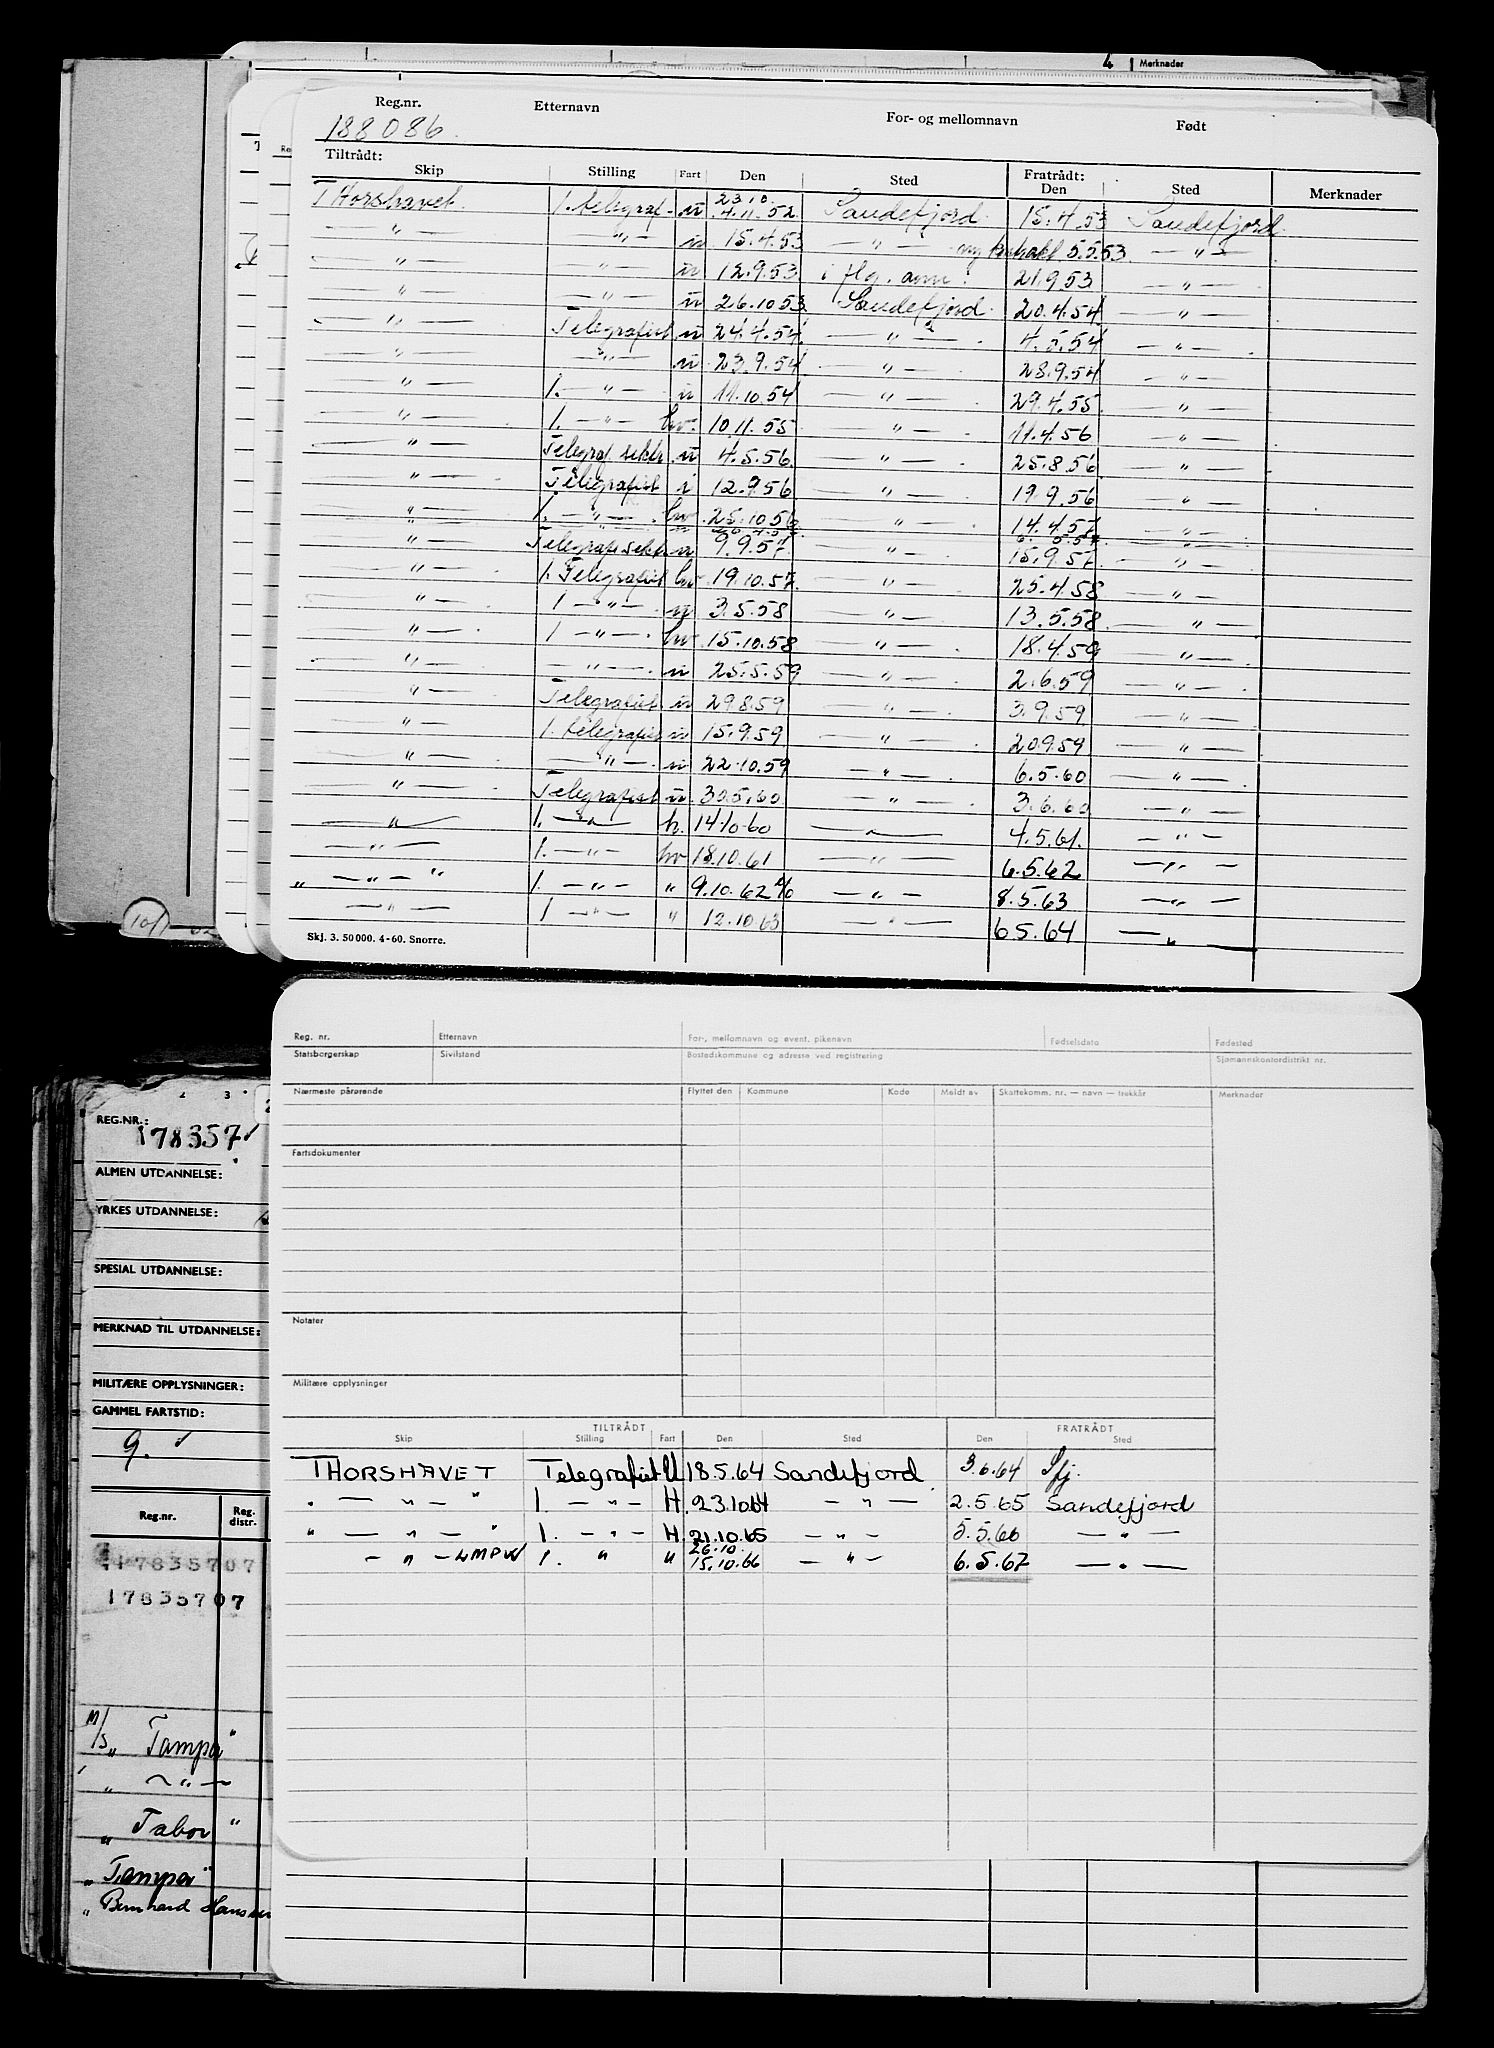 4 Merknader
Reg.nr. Etternavn For- og mellomnavn Født
188086.
Tiltrådt: Fratrådt:
Skip Stilling Fart Den Sted Den Sted Merknader
23.10
THorshavet. 1. telegraf. u 4.11.52. Sandefjord. 15.4.53 Sandefjord.
— " — — " — u 15.4.53 — " — ny kontrakt 5.5.53 — " —
— " — — " — u 12.9.53. i flg. anm. 21.9.53 — " —
— " — — " — u 26.10.53 Sandefjord. 20.4.54 — " —
— " — Telegrafist u 24.4.54. — " — 4.5.54 — " —
— " — — " — u 23.9.54 — " — 28.9.54 — " —
— " — 1. — " — u 11.10.54 — " — 29.4.55 — " —
— " — 1. — " — hv. 10.11.55 — " — 11.4.56 — " —
— " — Telegraf. sekr. u 4.5.56. — " — 25.8.56 — " —
— " — Telegrafist 12.9.56 — " — 19.9.56 — " —
— " — 1. — " — hv. 25.10.56 — " — 14.4.57 — " —
— " — Telegrafisekr u 9.9.57 — " — 15.9.57 — " —
— " — 1. Telegrafist hv 19.10.57. — " — 25.4.58 — " —
— " — 1 — " — u 3.5.58 — " — 13.5.58 — " —
— " — 1 — " — hv 15.10.58 — " — 18.4.59 — " —
— " — — " — u 25.5.59 — " — 2.6.59 — " —
— " — Telegrafist u 29.8.59 — " — 3.9.59 — " —
— " — 1. telegrafist u 15.9.59 — " — 20.9.59 — " —
— " — — " — u 22.10.59 — " — 6.5.60 — " —
— " — Telegrafist u 30.5.60 — " — 3.6.60 — " —
— " — 1. — " — h. 14.10.60 — " — 4.5.61. — " —
— " — 1. — " — hv 18.10.61 — " — 6.5.62 — " —
" — " — " 1. — " — " 9.10.62 — " — 8.5.63 — " —
— " — 1 — " — " 12.10.63 — " — 6.5.64 — " —
Skj. 3. 50 000. 4-60. Snorre.
Reg. nr. Etternavn For-, mellomnavn og event. pikenavn Fødselsdato Fødested
Statsborgerskap Sivilstand Bostedskommune og adresse ved registrering Sjømannskontordistrikt nr.
Nærmeste pårørende Flyttet den Kommune Kode Meldt av Skattekomm. nr. — navn — trekkår Merknader
Fartsdokumenter
Notater
Militære opplysninger
TILTRÅDT FRATRÅDT
Skip Stilling Fart Den Sted Den Sted
THORSHAVET Telegrafist U 18.5.64 Sandefjord 3.6.64 Sfj.
" — " — " 1. — " — H. 23.10.64 — " — 2.5.65 Sandefjord
" — " — " 1. — " — H. 21.10.65 — " — 5.5.66 — " —
26.10.
— " — LMPW 1. " " 15.10.66 — " — 6.5.67 — " —
2 3
REG.NR.: 178357
ALMEN UTDANNELSE:
YRKES UTDANNELSE:
SPESIAL UTDANNELSE:
MERKNAD TIL UTDANNELSE:
MILITÆRE OPPLYSNINGER:
GAMMEL FARTSTID:
9.
Reg.nr. Reg. distr.
17835707
17835707
M/S " Tampa "
" — " —
" Tabor "
" Tampa "
" Bernhard Hanssen